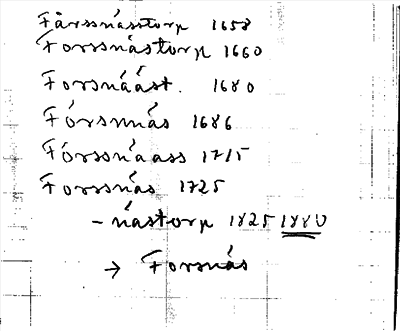 Fårssnässtorp 1658
Forssnästorp 1660
Forsnääst. 1680
Försnnäs 1686
Förssnäass 1715
Forssnäs 1725
- nästorp 1825 1880
→ Forsnäs